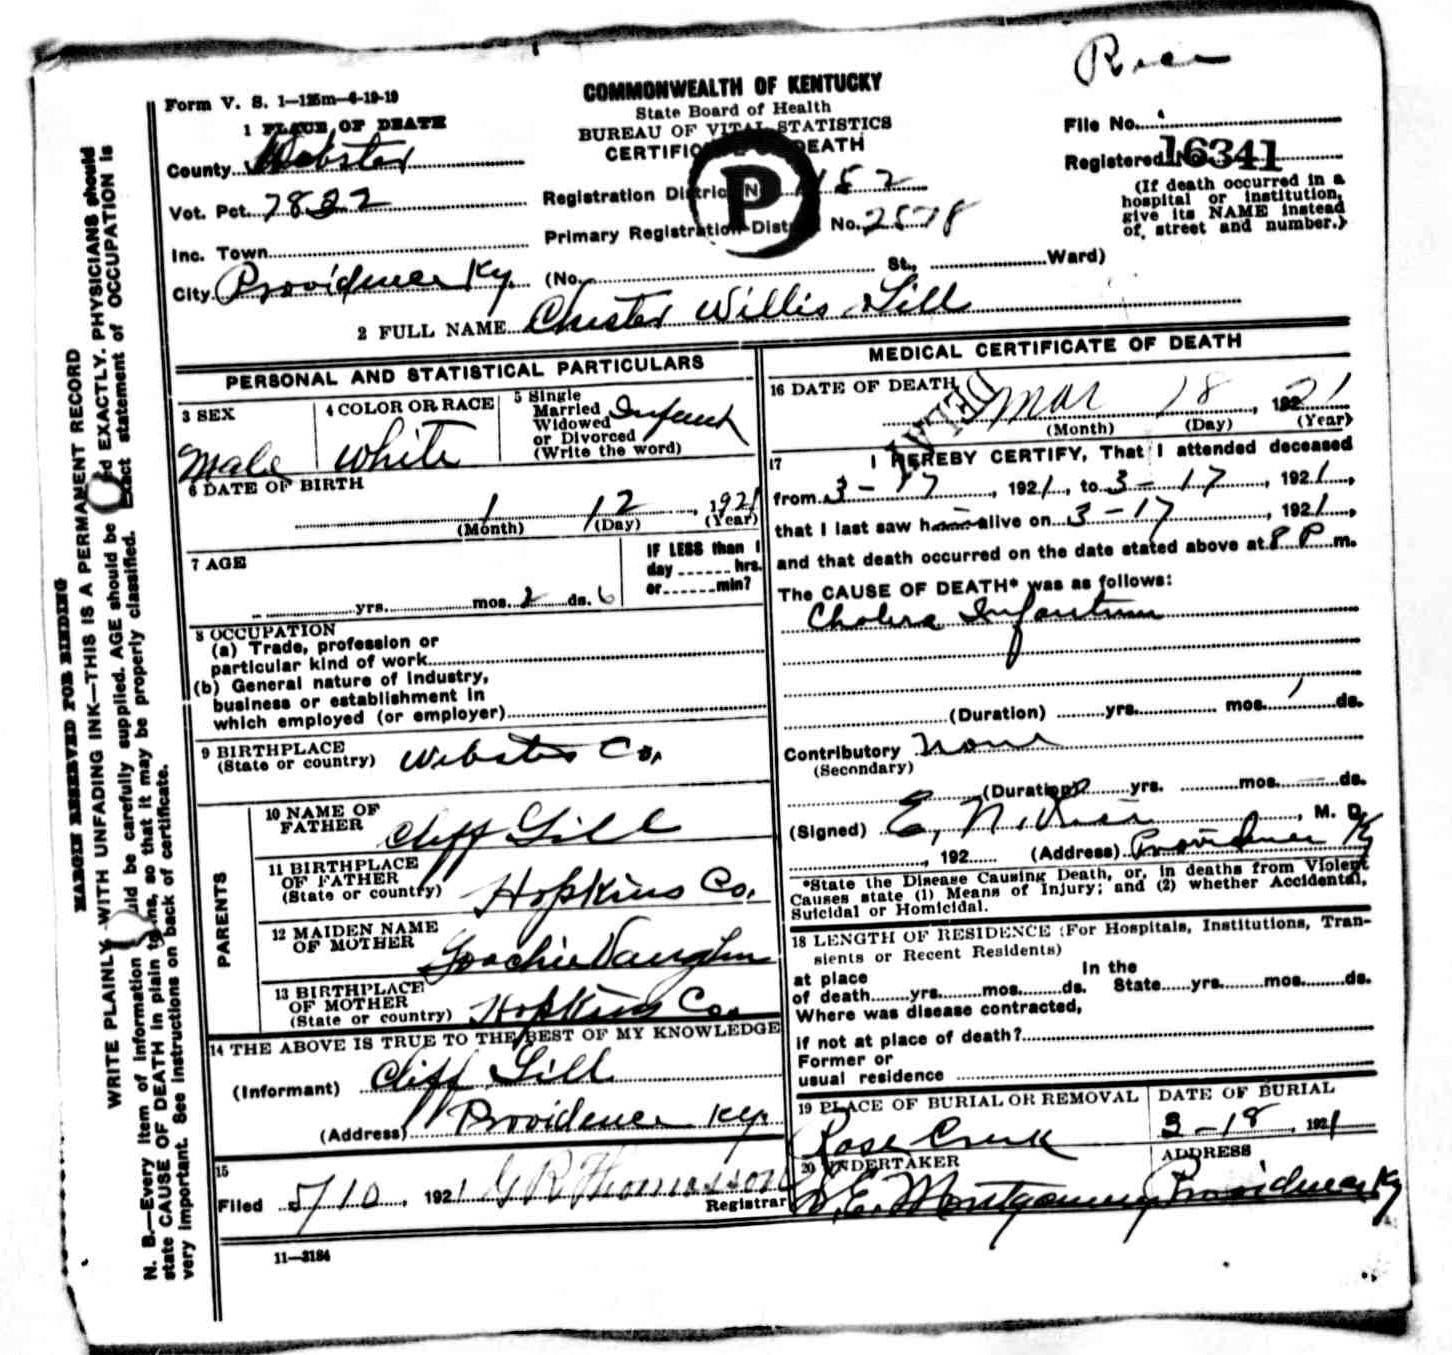 Rice
Form V. S. 1—125m—4-19-19
COMMONWEALTH OF KENTUCKY
State Board of Health
BUREAU OF VITAL STATISTICS
CERTIFICATE OF DEATH
P
1 PLACE OF DEATH
County Webster
Vot. Pct. 7832
Inc. Town
City Providence Ky.
Registration District No. 1152
Primary Registration District No. 2578
(No. St., Ward)
File No.
Registered No. 16341
(If death occurred in a
hospital or institution,
give its NAME instead
of street and number.)
2 FULL NAME Chester Willis Gill
PERSONAL AND STATISTICAL PARTICULARS
3 SEX
Male
4 COLOR OR RACE
White
5 Single
Married
Widowed
or Divorced
(Write the word)
Infant
6 DATE OF BIRTH
1 12, 1921
(Month) (Day) (Year)
7 AGE
yrs. mos. 2 ds. 6
IF LESS than 1
day hrs.
or min?
8 OCCUPATION
(a) Trade, profession or
particular kind of work
(b) General nature of Industry,
business or establishment in
which employed (or employer)
9 BIRTHPLACE
(State or country) Webster Co,
PARENTS
10 NAME OF
FATHER Cliff Gill
11 BIRTHPLACE
OF FATHER
(State or country) Hopkins Co.
12 MAIDEN NAME
OF MOTHER Vaughn
13 BIRTHPLACE
OF MOTHER
(State or country) Hopkins Co
14 THE ABOVE IS TRUE TO THE BEST OF MY KNOWLEDGE
(Informant) Cliff Gill
(Address) Providence Ky.
15
Filed 5/10, 1921 G R Thomasson
Registrar
11—3184
MEDICAL CERTIFICATE OF DEATH
16 DATE OF DEATH
DELAY
Mar 18, 1921
(Month) (Day) (Year)
17 I HEREBY CERTIFY, That I attended deceased
from 3-17, 1921, to 3-17, 1921,
that I last saw h alive on 3-17, 1921,
and that death occurred on the date stated above at 8 P m.
The CAUSE OF DEATH* was as follows:
Cholera Infantum
(Duration) yrs. mos. 1 ds.
Contributory None
(Secondary)
(Duration) yrs. mos. ds.
(Signed) E. N. Rice, M. D.
, 192 (Address) Providence Ky
*State the Disease Causing Death, or, in deaths from Violent
Causes state (1) Means of Injury; and (2) whether Accidental,
Suicidal or Homicidal.
18 LENGTH OF RESIDENCE (For Hospitals, Institutions, Tran-
sients or Recent Residents)
at place In the
of death yrs. mos. ds. State yrs. mos. ds.
Where was disease contracted,
if not at place of death?
Former or
usual residence
19 PLACE OF BURIAL OR REMOVAL
Rose Creek
DATE OF BURIAL
3-18, 1921
20 UNDERTAKER
E. Montgomery
ADDRESS
Providence Ky
MARGIN RESERVED FOR BINDING
WRITE PLAINLY WITH UNFADING INK—THIS IS A PERMANENT RECORD
N. B.—Every item of information should be carefully supplied. AGE should be stated EXACTLY. PHYSICIANS should
state CAUSE OF DEATH in plain terms, so that it may be properly classified. Exact statement of OCCUPATION is
very important. See instructions on back of certificate.